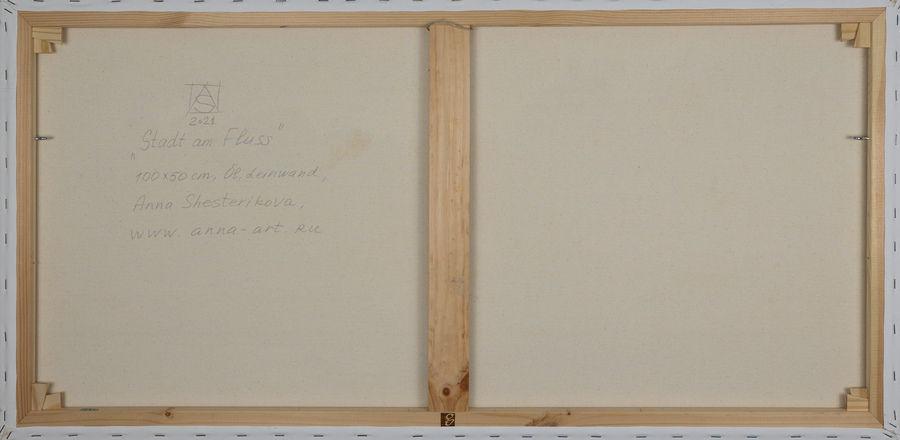 AS
2021
"Stadt am Fluss"
100x50 cm, Öl, Leinwand,
Anna Shesterikova,
www.anna-art.ru